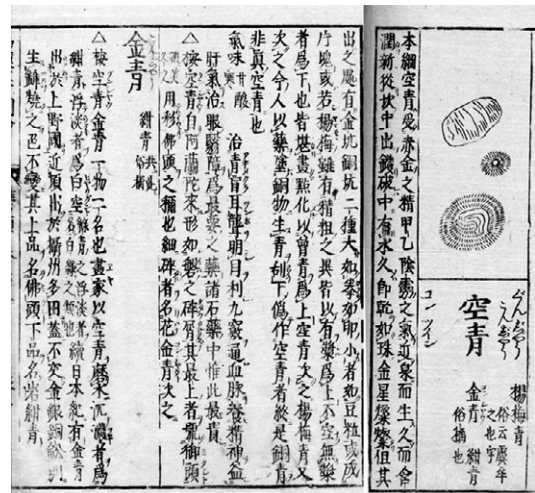 ぐんじやう
こんじやう
空青
コン ツイン
楊梅青
俗云
金青 紺青
俗稱也
本綱空青受赤金之精甲乙陰靈之氣近泉而生久而含
潤新從坎中出鑚破中有水久即乾如珠金星燦燦但其
出之處有金坑銅坑二種大如拳如卵小者如豆粒或成
片塊或若楊梅雖有精粗之異皆以有漿爲上不空無漿
者爲下也皆堪畫點化以曾青爲上空青次之楊梅青又
次之今人以藥塗銅物生青刮下偽作空青者終是銅青
非真空青也
氣味 甘酸寒 治青盲耳聾明目利九竅通血脉養精神益
肝氣治眼翳障爲最要之藥諸石藥中惟此最貴
△按空青自阿蘭陀來形如礬之碎屑其最上者號御頭
用彩佛頭之稱也細碎者名花金青次之
金青 紺青 共此俗稱
△按空青金青一物二名也畫家以空青藥末沉濃者爲
紺青浮淡者爲白空 緑青之浮淡者 續日本紀有金青
出於上野國近頃出於攝州多田蓋不交金銀銅鉛別
生鮮燒之色不變其上品名佛頭下品名岩紺青